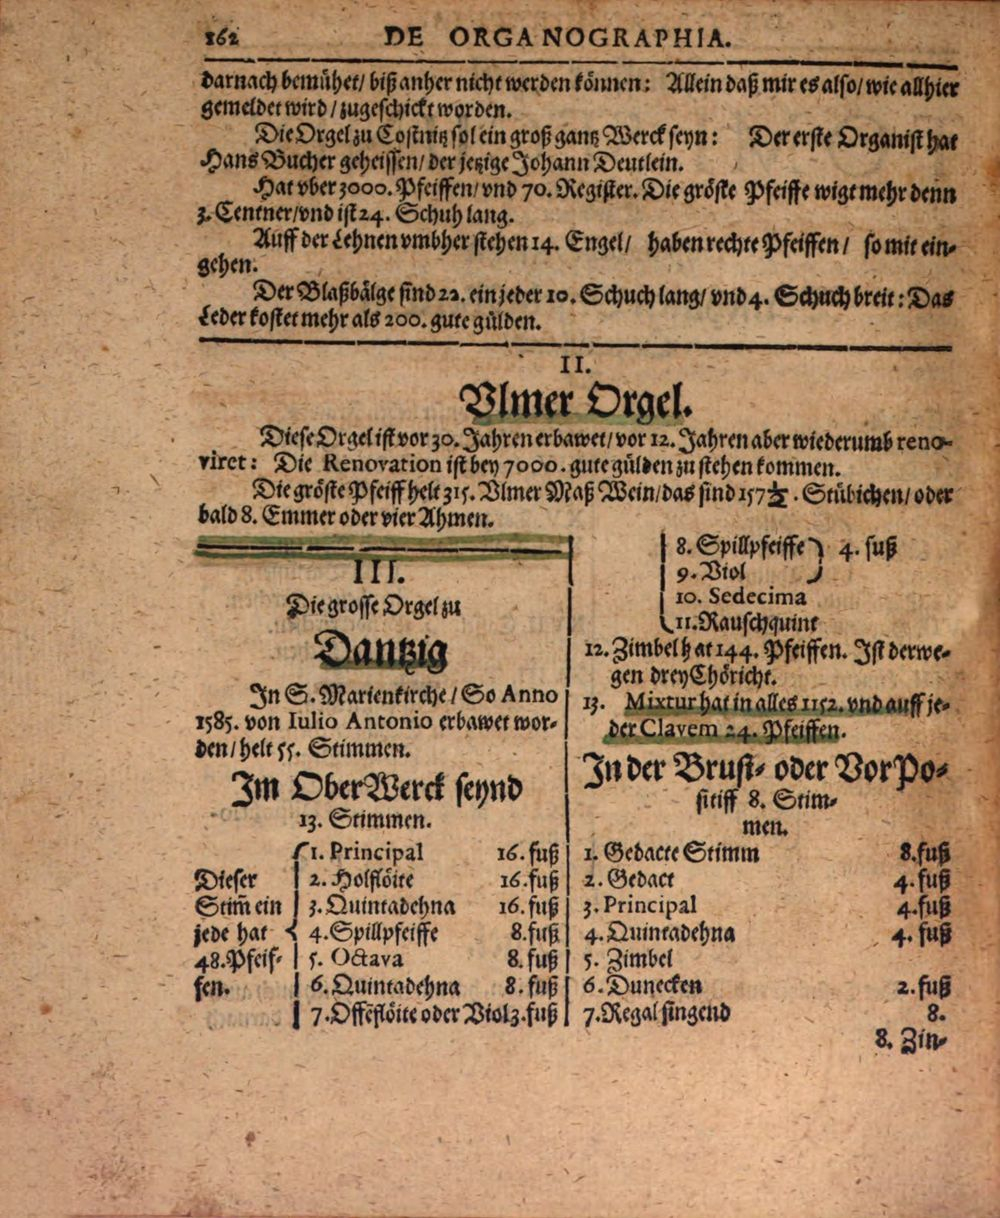 162 DE ORGANOGRAPHIA.
darnach bemühet/ biß anher nicht werden können: Allein daß mir es also/ wie allhier
gemeldet wird/ zugeschickt worden.
Die Orgel zu Costnitz sol ein groß gantz Werck seyn: Der erste Organist hat
Hans Bucher geheissen/ der jetzige Johann Deutlein.
Hat vber 3000. Pfeiffen/ vnd 70. Register. Die gröste Pfeiffe wigt mehr denn
3. Centner/ vnd ist 24. Schuh lang.
Auff der Lehnen vmbher stehen 14. Engel/ haben rechte Pfeiffen/ so mit ein-
gehen.
Der Blaßbälge sind 22. ein jeder 10. Schuch lang/ vnd 4. Schuch breit: Das
Leder kostet mehr als 200. gute gülden.
II.
Vlmer Orgel.
Diese Orgel ist vor 30. Jahren erbawet/ vor 12. Jahren aber wiederumb reno-
viret: Die Renovation ist bey 7000. gute gülden zu stehen kommen.
Die gröste Pfeiff helt 315. Vlmer Maß Wein/ das sind 157½. Stübichen/ oder
bald 8. Emmer oder vier Ahmen.
III.
Die grosse Orgel zu
Dantzig
In S. Marienkirche/ So Anno
1585. von Iulio Antonio erbawet wor-
den/ helt 55. Stimmen.
Im OberWerck seynd
13. Stimmen.
Dieser
Stim̄ ein
jede hat
48. Pfeif-
fen.
1. Principal 16. fuß
2. Holflöite 16. fuß
3. Quintadehna 16. fuß
4. Spillpfeiffe 8. fuß
5. Octava 8. fuß
6. Quintadehna 8. fuß
7. Offēflöite oder Viol 3. fuß
8. Spillpfeiffe 4. fuß
9. Viol
10. Sedecima
11. Rauschquint
12. Zimbel hat 144. Pfeiffen. Ist derwe-
gen drey Chöricht.
13. Mixtur hat in alles 1152. vnd auff je-
der Clavem 24. Pfeiffen.
In der Brust- oder VorPo-
sitiff 8. Stim-
men.
1. Gedacte Stimm 8. fuß
2. Gedact 4. fuß
3. Principal 4. fuß
4. Quintadehna 4. fuß
5. Zimbel
6. Dunecken 2. fuß
7. Regal singend 8.
8. Zin-